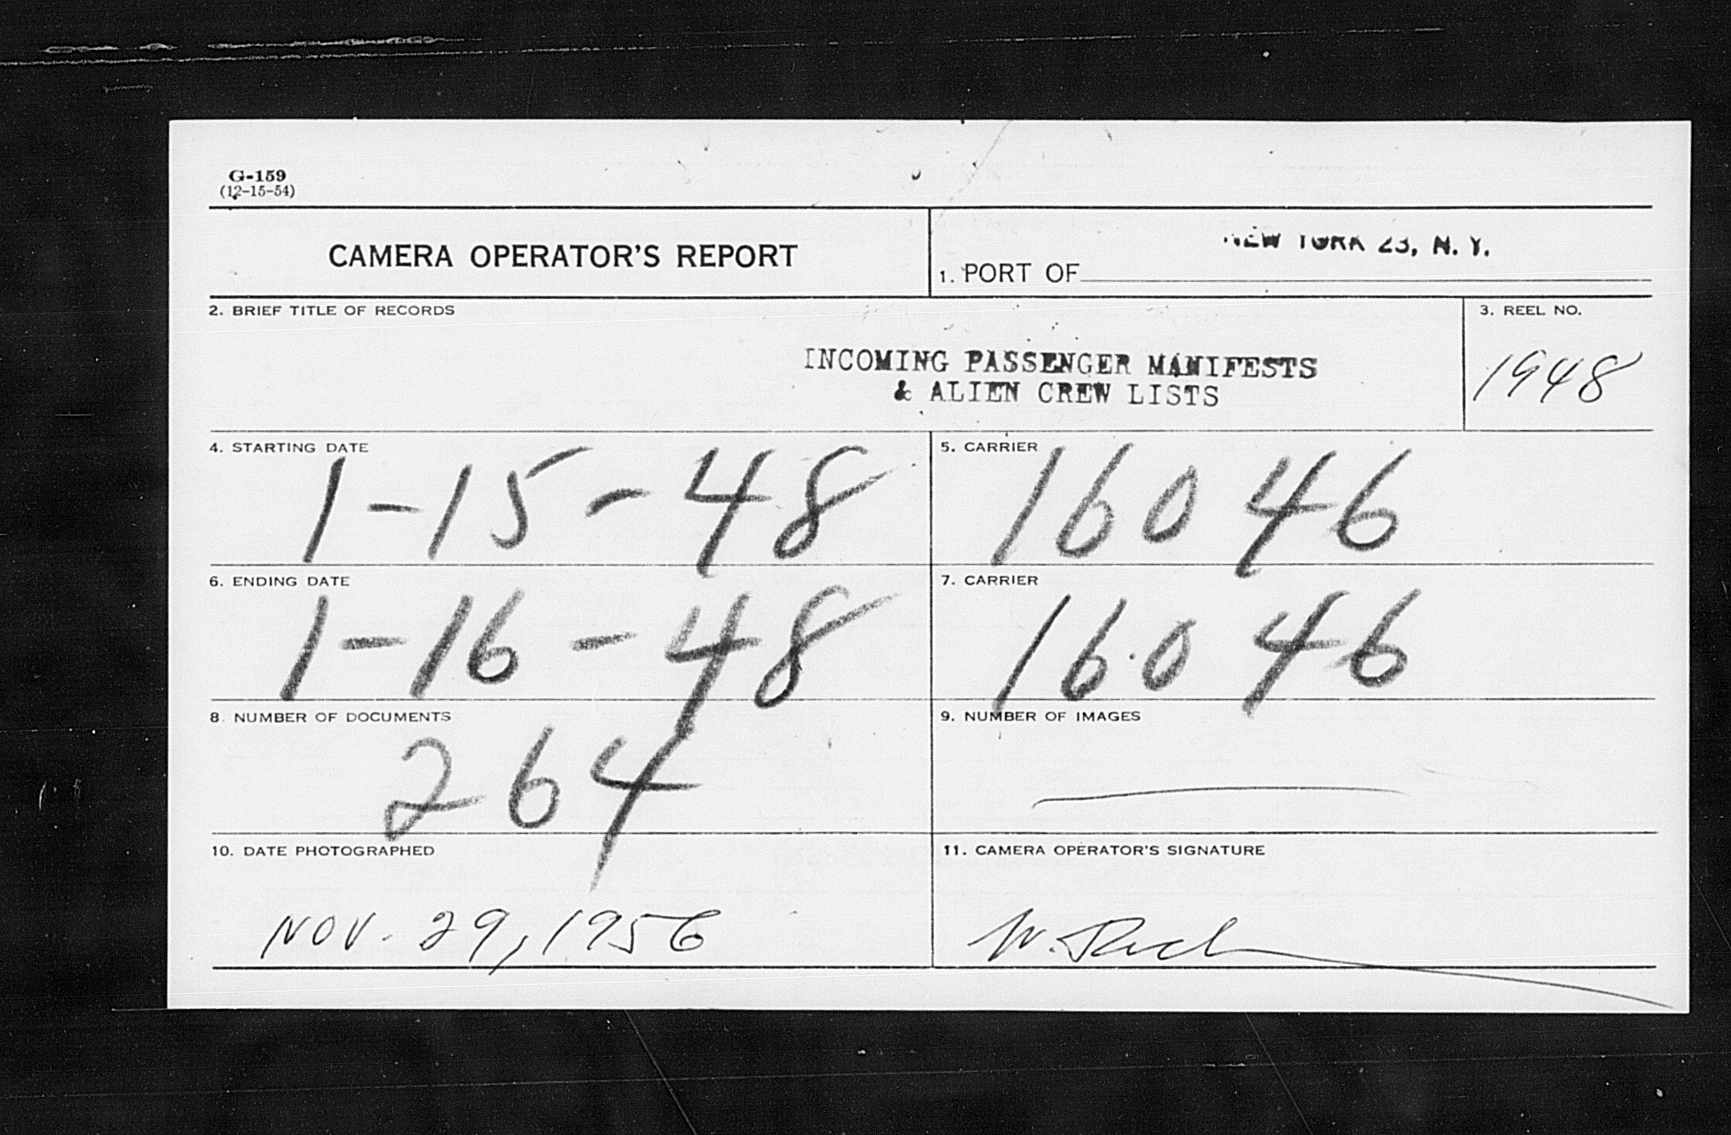 G-159
(12-15-54)
CAMERA OPERATOR'S REPORT
1. PORT OF NEW YORK 23, N. Y.
2. BRIEF TITLE OF RECORDS
INCOMING PASSENGER MANIFESTS
& ALIEN CREW LISTS
3. REEL NO.
1948
4. STARTING DATE
1-15-48
5. CARRIER
16046
6. ENDING DATE
1-16-48
7. CARRIER
16046
8. NUMBER OF DOCUMENTS
264
9. NUMBER OF IMAGES
10. DATE PHOTOGRAPHED
NOV. 29, 1956
11. CAMERA OPERATOR'S SIGNATURE
W.